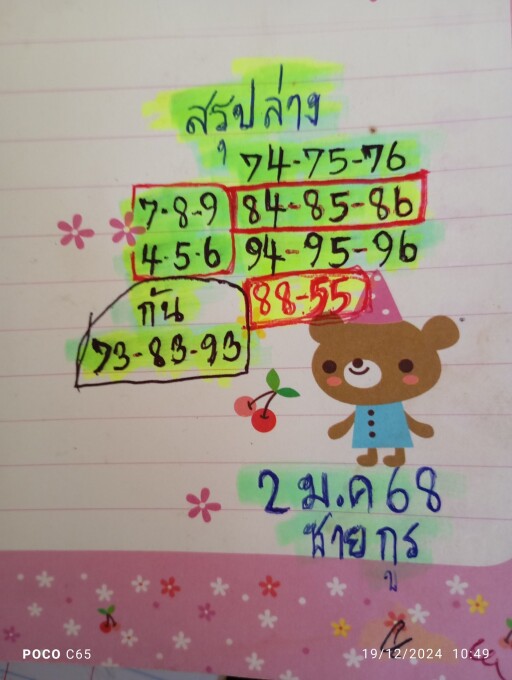 สรุปล่าง
74-75-76
7-8-9 84-85-86
4-5-6 94-95-96
กัน 88-55
73-83-93
2 ม.ค 68
ชายกูร
POCO C65 19/12/2024 10:49